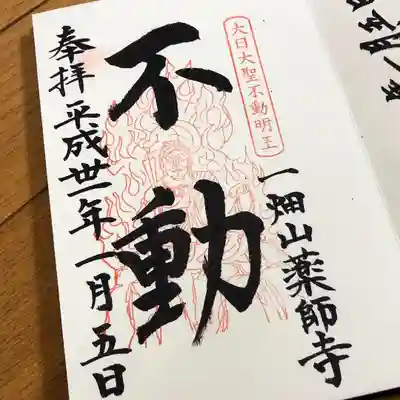 大日大聖不動明王
一畑山薬師寺
不動
奉拝 平成丗一年一月五日